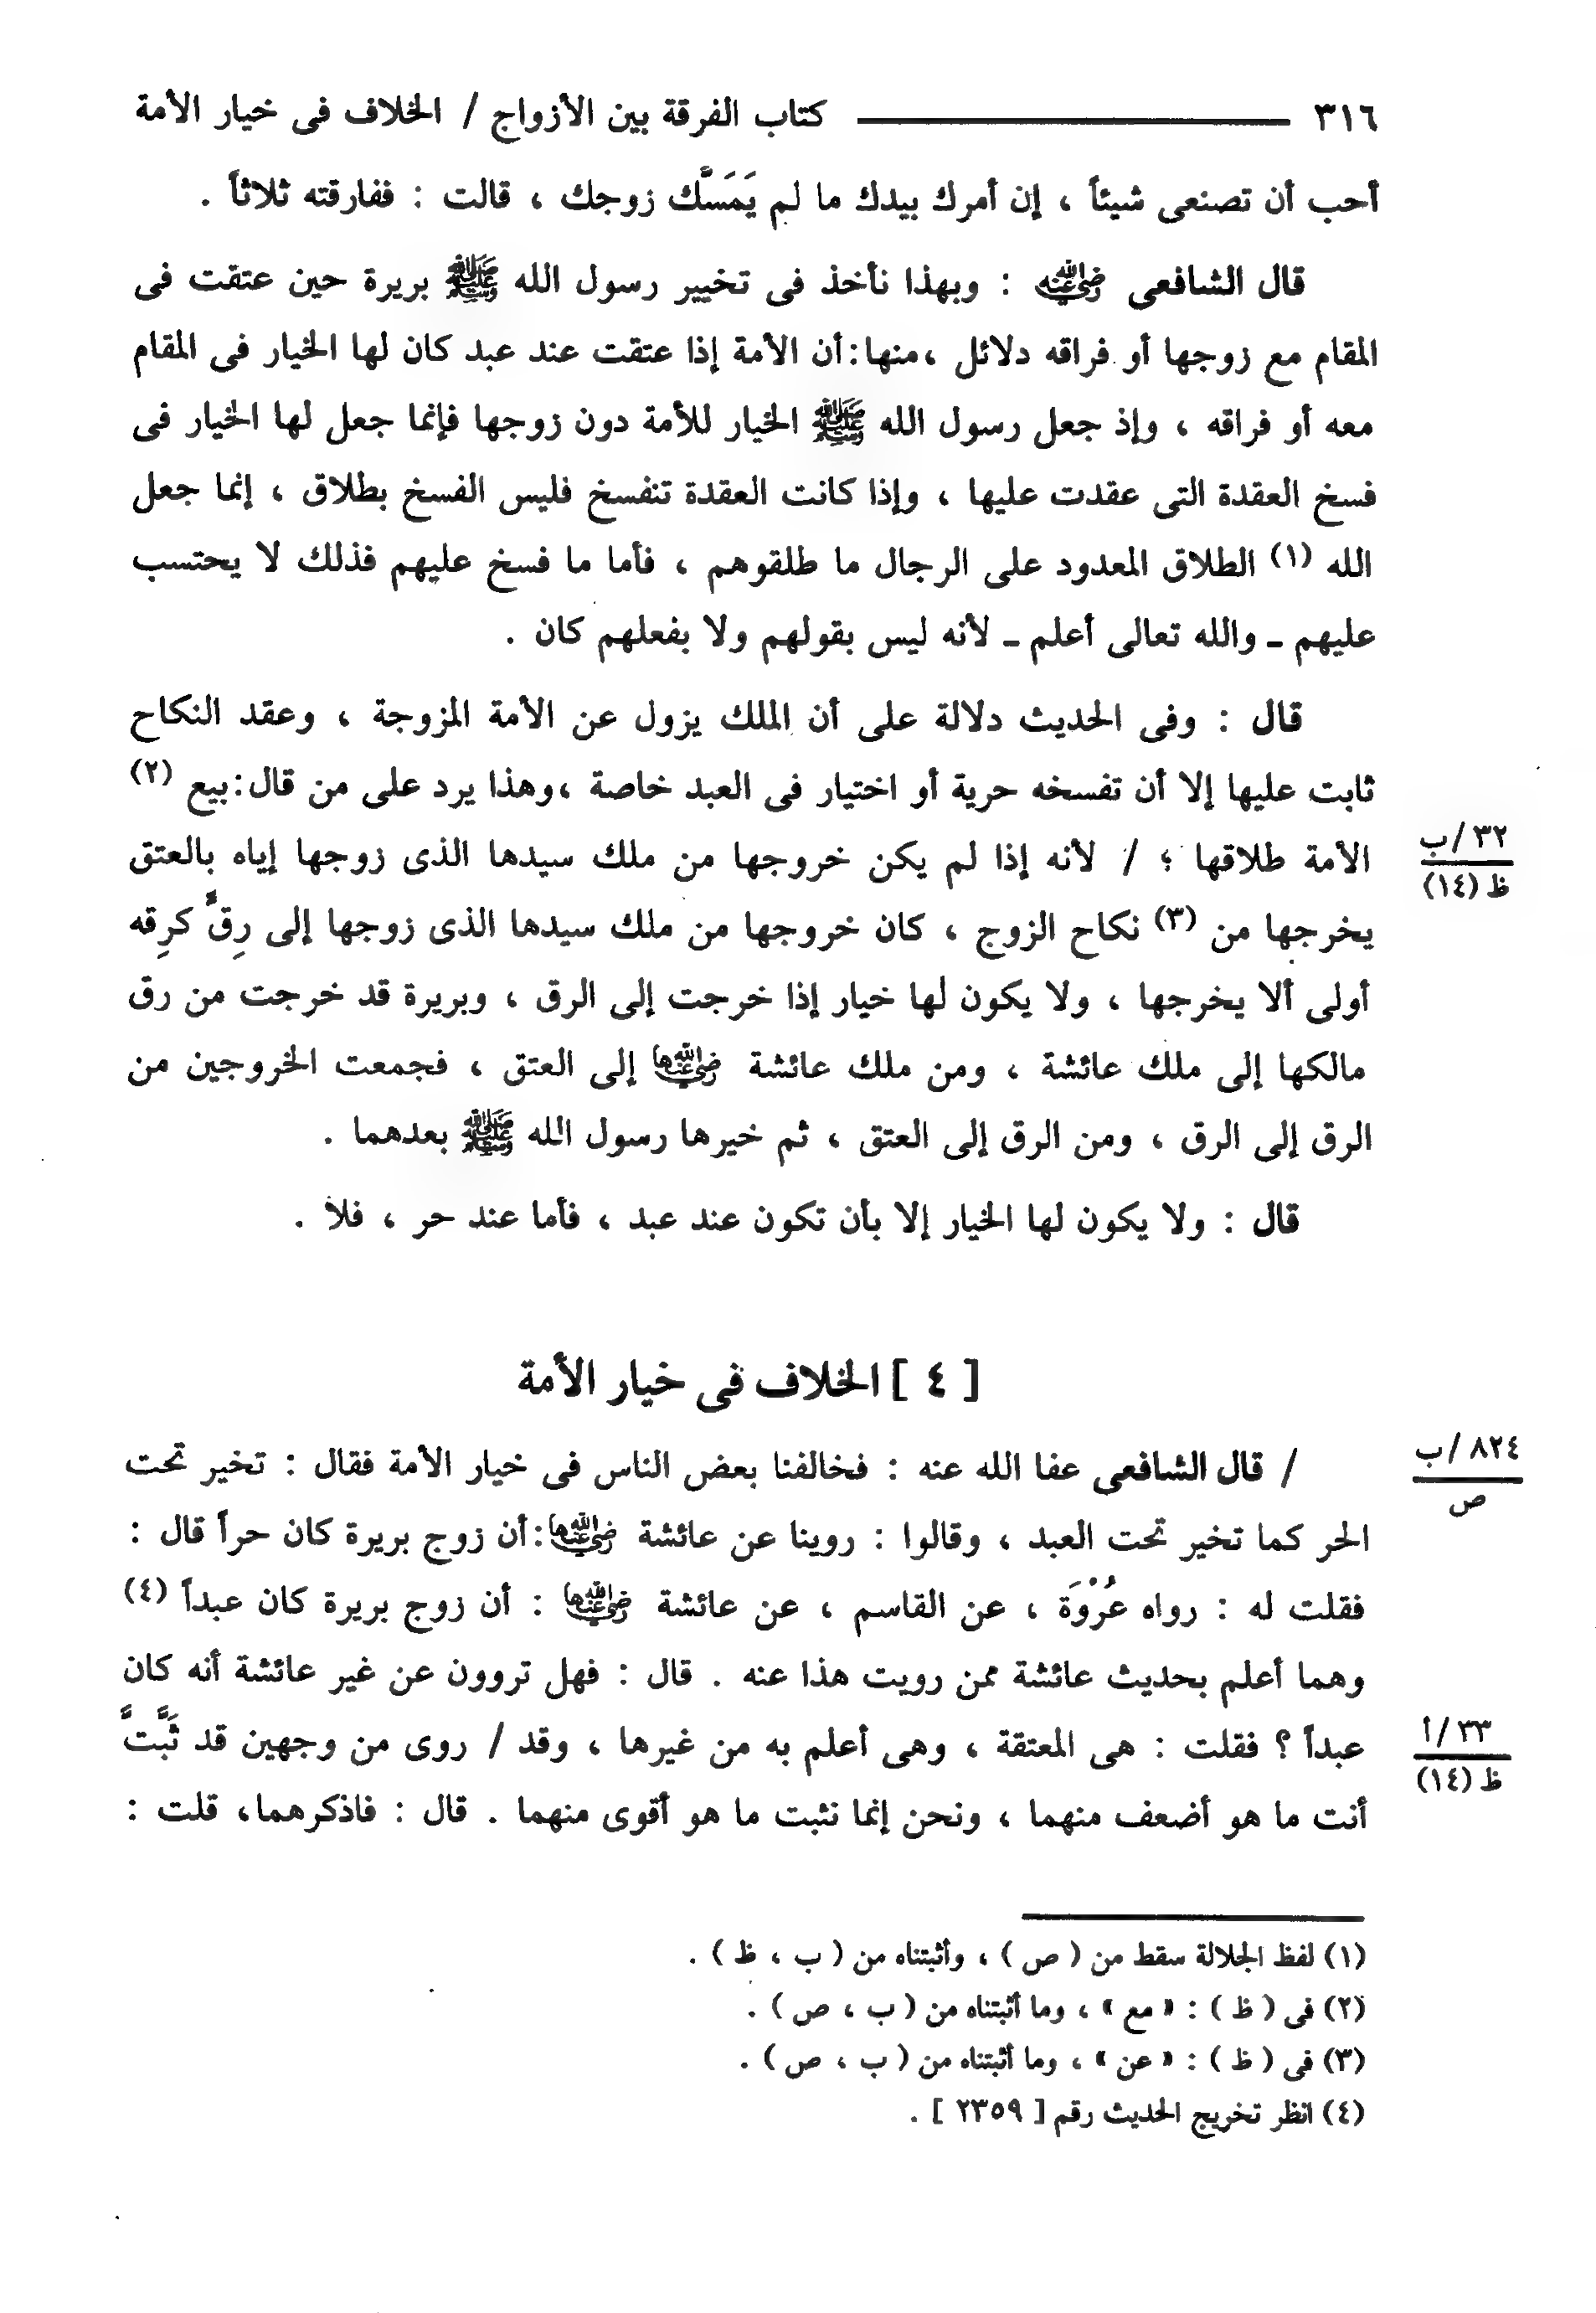 ٣١٦ كتاب الفرقة بين الأزواج / الخلاف فى خيار الأمة
أحب أن تصنعى شيئاً ، إن أمرك بيدك ما لم يَمَسَّك زوجك ، قالت : ففارقته ثلاثاً .
قال الشافعى رضي الله عنه : وبهذا نأخذ فى تخيير رسول الله ﷺ بريرة حين عتقت فى
المقام مع زوجها أو فراقه دلائل ،منها:أن الأمة إذا عتقت عند عبد كان لها الخيار فى المقام
معه أو فراقه ، وإذ جعل رسول الله ﷺ الخيار للأمة دون زوجها فإنما جعل لها الخيار فى
فسخ العقدة التى عقدت عليها ، وإذا كانت العقدة تنفسخ فليس الفسخ بطلاق ، إنما جعل
الله (١) الطلاق المعدود على الرجال ما طلقوهم ، فأما ما فسخ عليهم فذلك لا يحتسب
عليهم ـ والله تعالى أعلم ـ لأنه ليس بقولهم ولا بفعلهم كان .
قال : وفى الحديث دلالة على أن الملك يزول عن الأمة المزوجة ، وعقد النكاح
ثابت عليها إلا أن تفسخه حرية أو اختيار فى العبد خاصة ،وهذا يرد على من قال:بيع (٢)
الأمة طلاقها ؛ / لأنه إذا لم يكن خروجها من ملك سيدها الذى زوجها إياه بالعتق
٣٢/ب
ظ (١٤)
يخرجها من (٣) نكاح الزوج ، كان خروجها من ملك سيدها الذى زوجها إلى رِقٍّ كرِقه
أولى ألا يخرجها ، ولا يكون لها خيار إذا خرجت إلى الرق ، وبريرة قد خرجت من رق
مالكها إلى ملك عائشة ، ومن ملك عائشة رضي الله عنها إلى العتق ، فجمعت الخروجين من
الرق إلى الرق ، ومن الرق إلى العتق ، ثم خيرها رسول الله ﷺ بعدهما .
قال : ولا يكون لها الخيار إلا بأن تكون عند عبد ، فأما عند حر ، فلا .
[ ٤ ] الخلاف فى خيار الأمة
/ قال الشافعى عفا الله عنه : فخالفنا بعض الناس فى خيار الأمة فقال : تخير تحت
٨٢٤/ب
ص
الحر كما تخير تحت العبد ، وقالوا : روينا عن عائشة رضي الله عنها:أن زوج بريرة كان حراً قال :
فقلت له : رواه عُرْوَة ، عن القاسم ، عن عائشة رضي الله عنها : أن زوج بريرة كان عبداً (٤)
وهما أعلم بحديث عائشة ممن رويت هذا عنه . قال : فهل تروون عن غير عائشة أنه كان
عبداً ؟ فقلت : هى المعتقة ، وهى أعلم به من غيرها ، وقد / روى من وجهين قد ثَبَّتَّ
٣٣/أ
ظ (١٤)
أنت ما هو أضعف منهما ، ونحن إنما نثبت ما هو أقوى منهما . قال : فاذكرهما، قلت :
(١) لفظ الجلالة سقط من ( ص ) ، وأثبتناه من ( ب ، ظ ) .
(٢) فى ( ظ ) : « مع » ، وما أثبتناه من ( ب ، ص ) .
(٣) فى ( ظ ) : « عن » ، وما أثبتناه من ( ب ، ص ) .
(٤) انظر تخريج الحديث رقم [ ٢٣٥٩ ] .